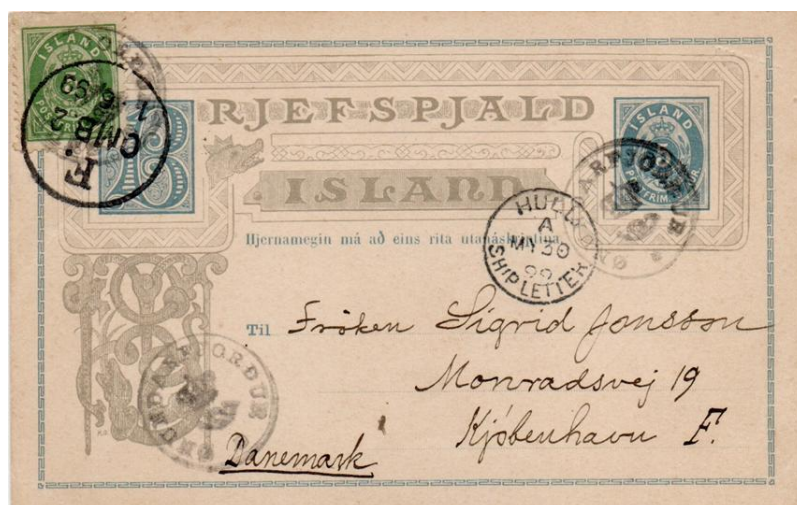 ISLAND
BRJEFSPJALD
ISLAND
ISLAND
5
Hjernamegin má að eins rita utanáskriptina
HULL
A
MY 30
99
SHIP LETTER
Til Frøken Sigrid Jonsson
Monradsvej 19
Kjøbenhavn F.
Danemark
ØNUNDARFJORÐUR